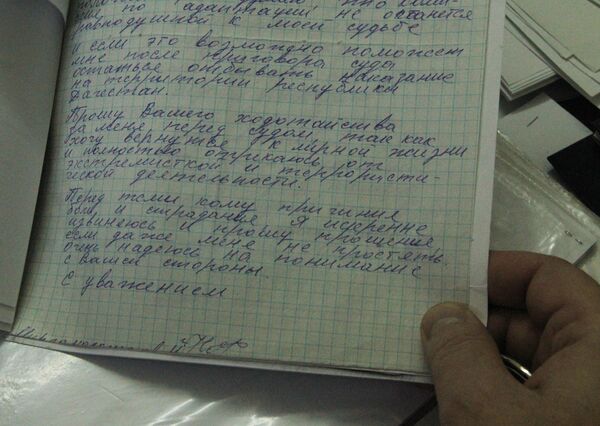 по адаптации не останется
равнодушной к моей судьбе
И если это возможно поможет
мне после приговора суда
остаться отбывать наказание
на территории республики
Дагестан.
Прошу Вашего ходотайства
за меня перед судом так как
хочу вернутся к мирной жизни
и полностью отрекаюсь от
экстремисткой и террористи-
ческой деятельности.
Перед теми кому причинил
боль и страдания я искренне
извиняюсь и прошу прощения
если даже меня не простять.
Очень надеюсь на понимание
с вашей стороны.
С уважением